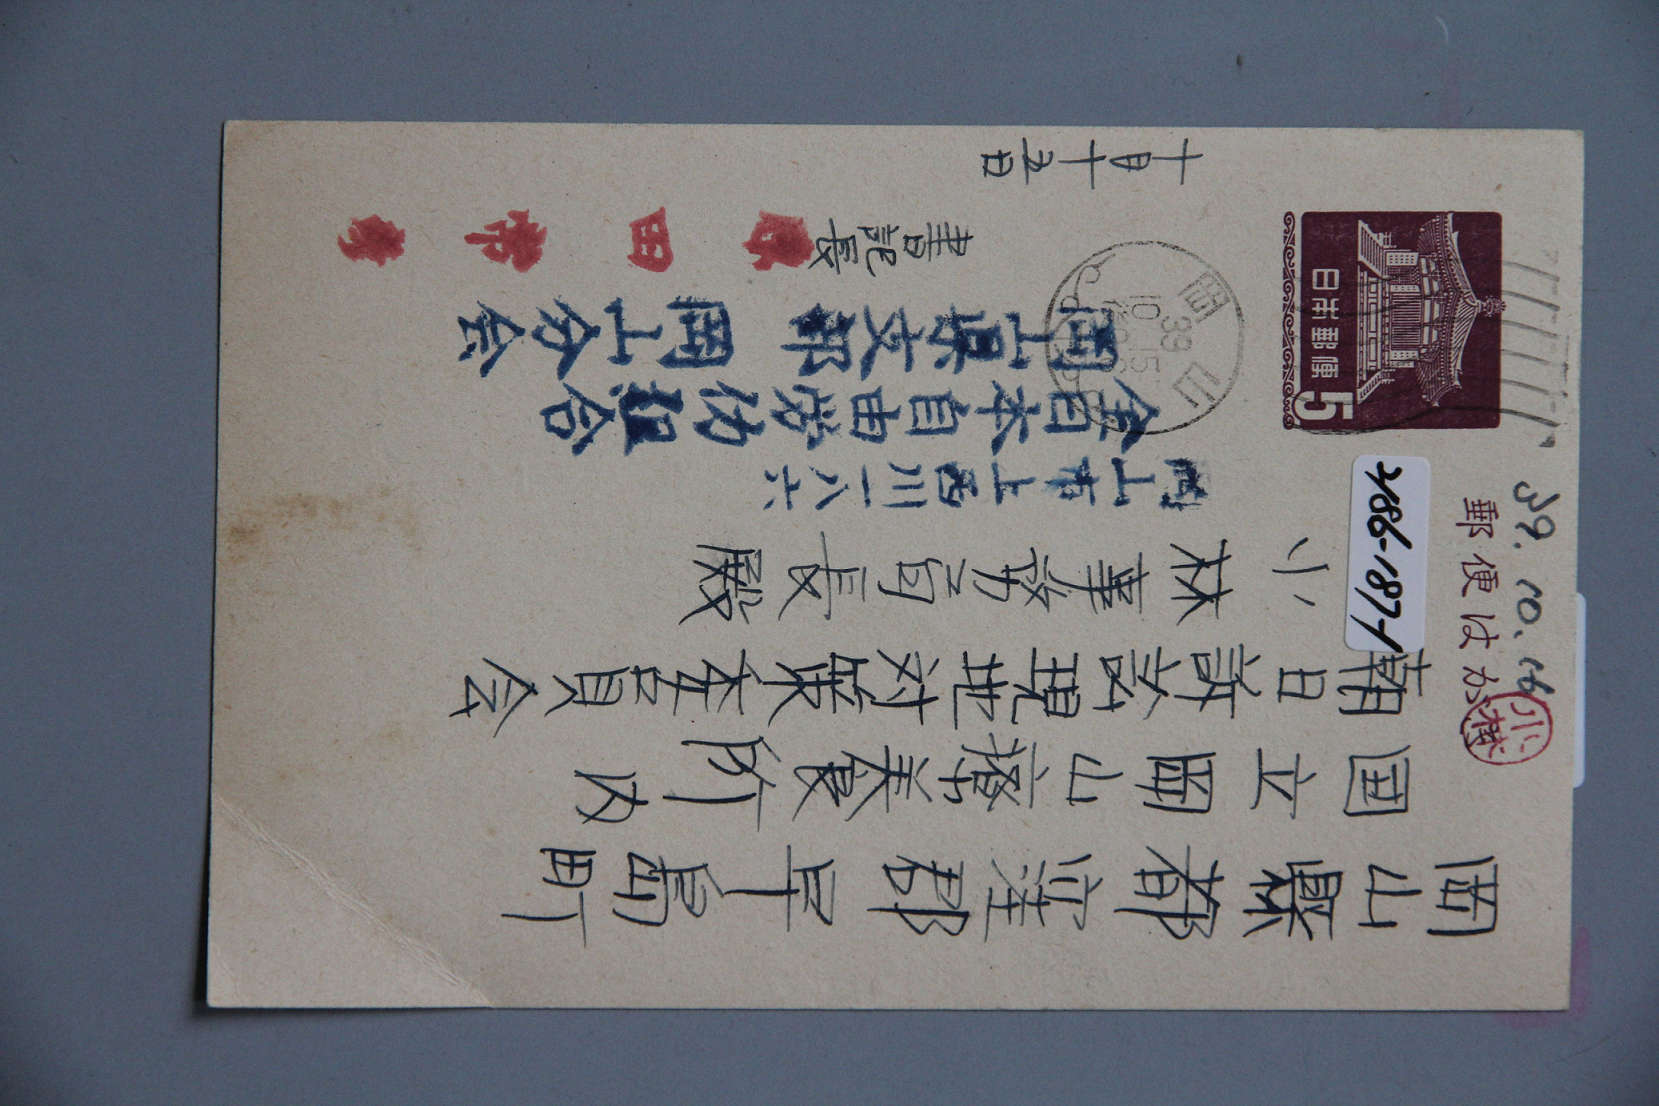 郵便はがき
39.10.16
小林
4886-187-1
日本郵便
5
岡山
39
岡山縣都窪郡早島町
国立岡山療養所内
朝日訴訟現地対策委員会
小林事務局長殿
岡山市上西川一八六
全日本自由労仂組合
岡山県支部岡山分会
書記長
田常
十月十五日